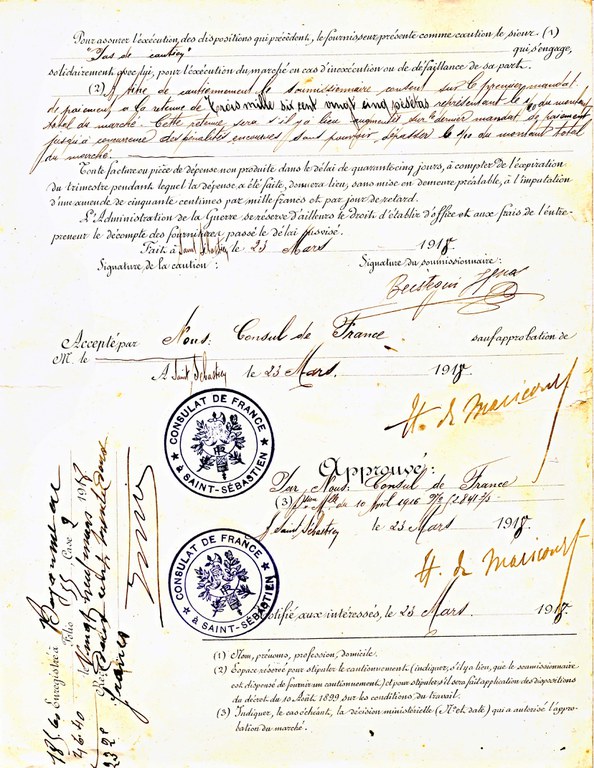 Pour assurer l'exécution des dispositions qui précèdent, le fournisseur présente comme caution le sieur (1)
"Pas de caution" qui s'engage,
solidairement avec lui, pour l'exécution du marché en cas d'inexécution ou de défaillance de sa part.
(2) A titre de cautionnement le soumissionnaire consent sur le premier mandat
de paiement à la retenue de Trois mille six cent vingt cinq pésétas représentant le du montant
total du marché. Cette retenue sera s'il y a lieu augmentée sur le dernier mandat de paiement
jusqu'à concurrence des pénalités encourues sans pouvoir dépasser le 1/10 du montant total
du marché.
Toute facture ou pièce de dépense non produite dans le délai de quarante-cinq jours, à compter de l'expiration
du trimestre pendant lequel la dépense a été faite, donnera lieu, sans mise en demeure préalable, à l'imputation
d'une amende de cinquante centimes par mille francs et par jour de retard.
L'Administration de la Guerre se réserve d'ailleurs le droit d'établir d'office et aux frais de l'entre-
preneur le décompte des fournitures passé le délai susvisé.
Fait à Saint Sébastien le 23 Mars 1918
Signature de la caution : Signature du soumissionnaire :
Accepté par Nous: Consul de France sauf approbation de
M. le
A Saint Sébastien le 23 Mars. 1918.
H. de Maricourt
CONSULAT DE FRANCE
à SAINT-SÉBASTIEN
Approuvé:
Par Nous: Consul de France
(3) du 10 Avril 1916
à Saint Sébastien le 23 Mars 1918
H. de Maricourt
CONSULAT DE FRANCE
à SAINT-SÉBASTIEN
Notifié aux intéressés, le 23 Mars. 1918.
Enregistré à Bayonne
Folio 55 Case 2
Vingt neuf mars 1918
francs
(1) Nom, prénoms, profession, domicile.
(2) Espace réservé pour stipuler le cautionnement (indiquer, s'il y a lieu, que le soumissionnaire
est dispensé de fournir un cautionnement) et pour stipuler s'il sera fait application des dispositions
du décret du 10 Août 1899 sur les conditions du travail.
(3) Indiquer, le cas échéant, la décision ministérielle (N° et date) qui a autorisé l'appro-
bation du marché.